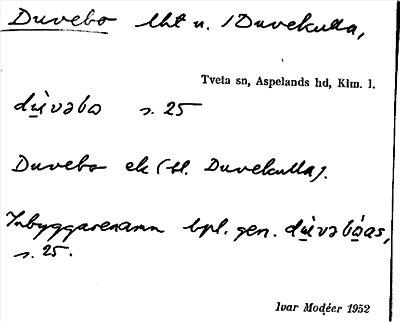 Duvebo lht u. /Duvekulla,
Tveta sn, Aspelands hd, Klm. l.
dù̱vəbo s. 25
Duvebo ek (tl. Duvekulla).
Inbyggarenamn bpl. gen. dù̱vəbó̱as,
s. 25.
Ivar Modéer 1952